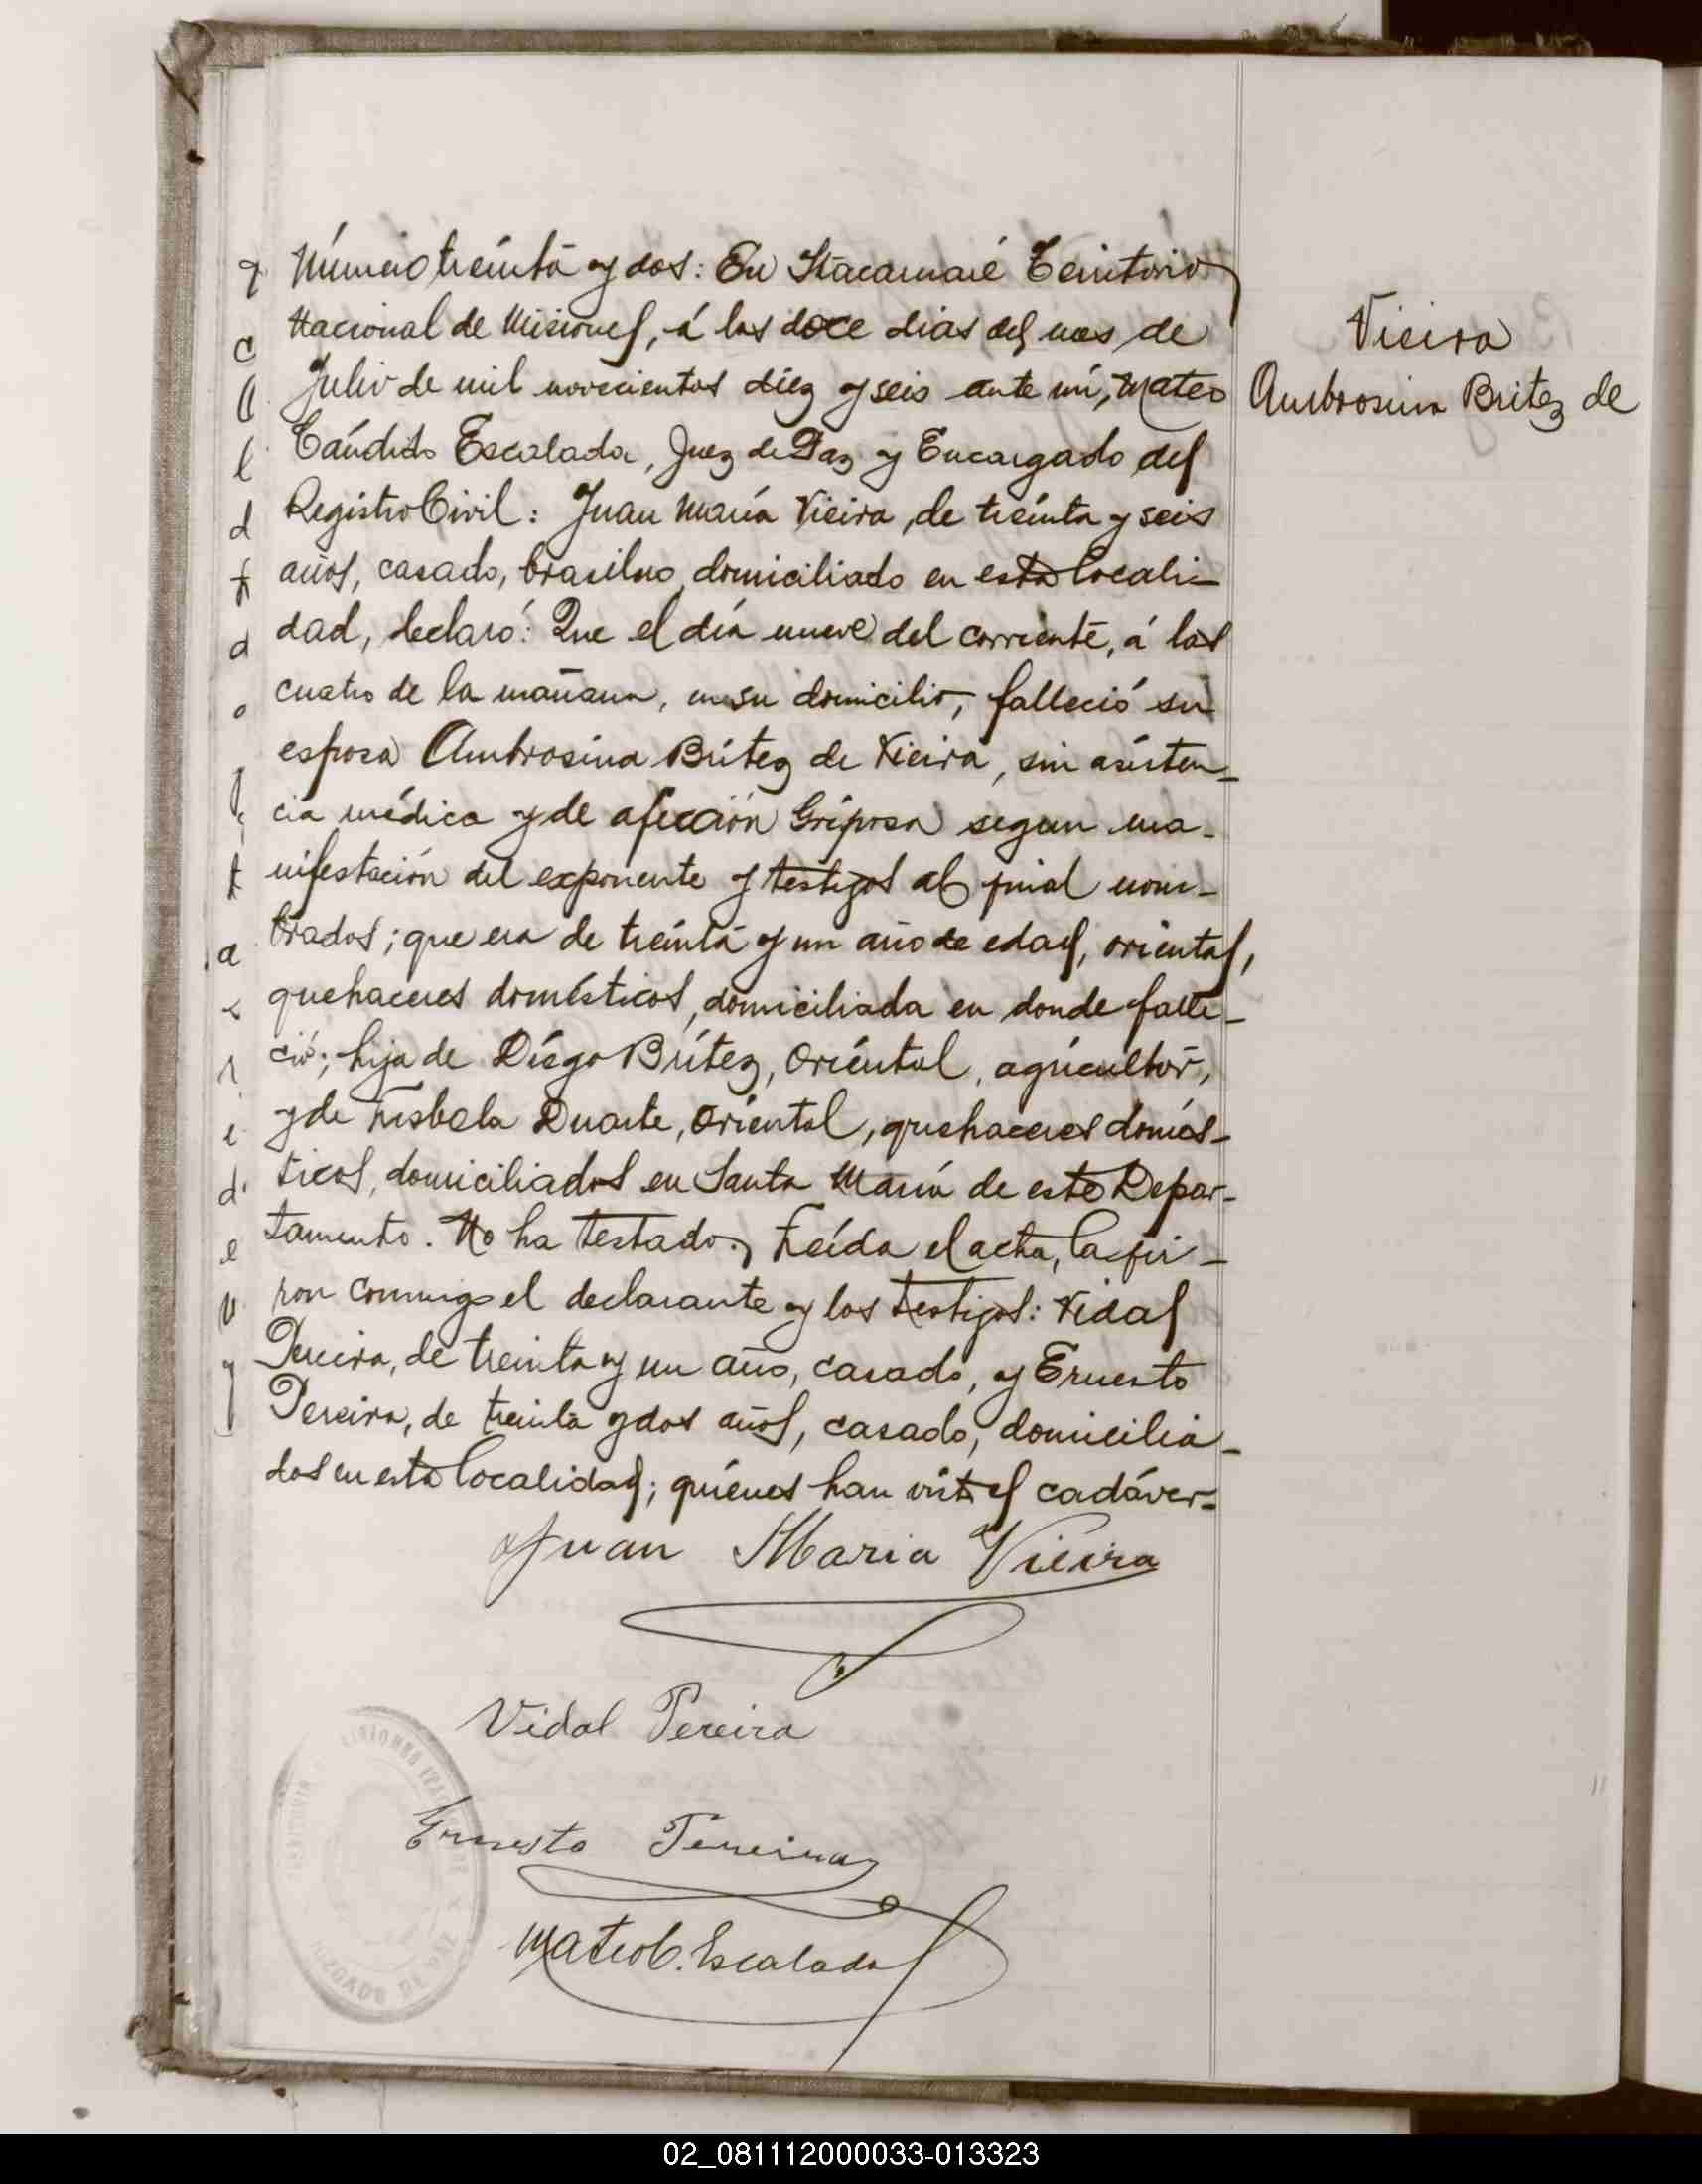 Número treinta y dos: En Itacaruaré Territorio
Nacional de Misiones, á los doce dias del mes de
Julio de mil novecientos diez y seis ante mí, Mateo
Cándido Escalada, Juez de Paz y Encargado del
Registro Civil: Juan María Vieira, de treinta y seis
años, casado, brasilero, domiciliado en esta locali-
dad, declaró: Que el día nueve del corriente, á las
cuatro de la mañana, en su domicilio, falleció su
esposa Ambrosina Britez de Vieira, sin asisten-
cia médica y de afección Griposa segun ma-
nifestación del exponente y testigos al final nom-
brados; que era de treinta y un año de edad, oriental,
quehaceres domésticos, domiciliada en donde falle-
ció; hija de Diego Britez, Oriental, agricultor,
y de Duarte, Oriental, quehaceres domés-
ticos, domiciliados en Santa María de este Depar-
tamento. No ha testado. Leída el acta, la fir-
ron conmigo el declarante y los testigos: Vidal
Pereira, de treinta y un año, casado, y Ernesto
Pereira, de treinta y dos años, casado, domicilia-
dos en esta localidad; quienes han visto el cadáver=
Juan Maria Vieira
Vidal Pereira
Ernesto Pereira
Mateo C. Escalada
JUZGADO DE PAZ
Vieira
Ambrosina Britez de
02_081112000033-013323